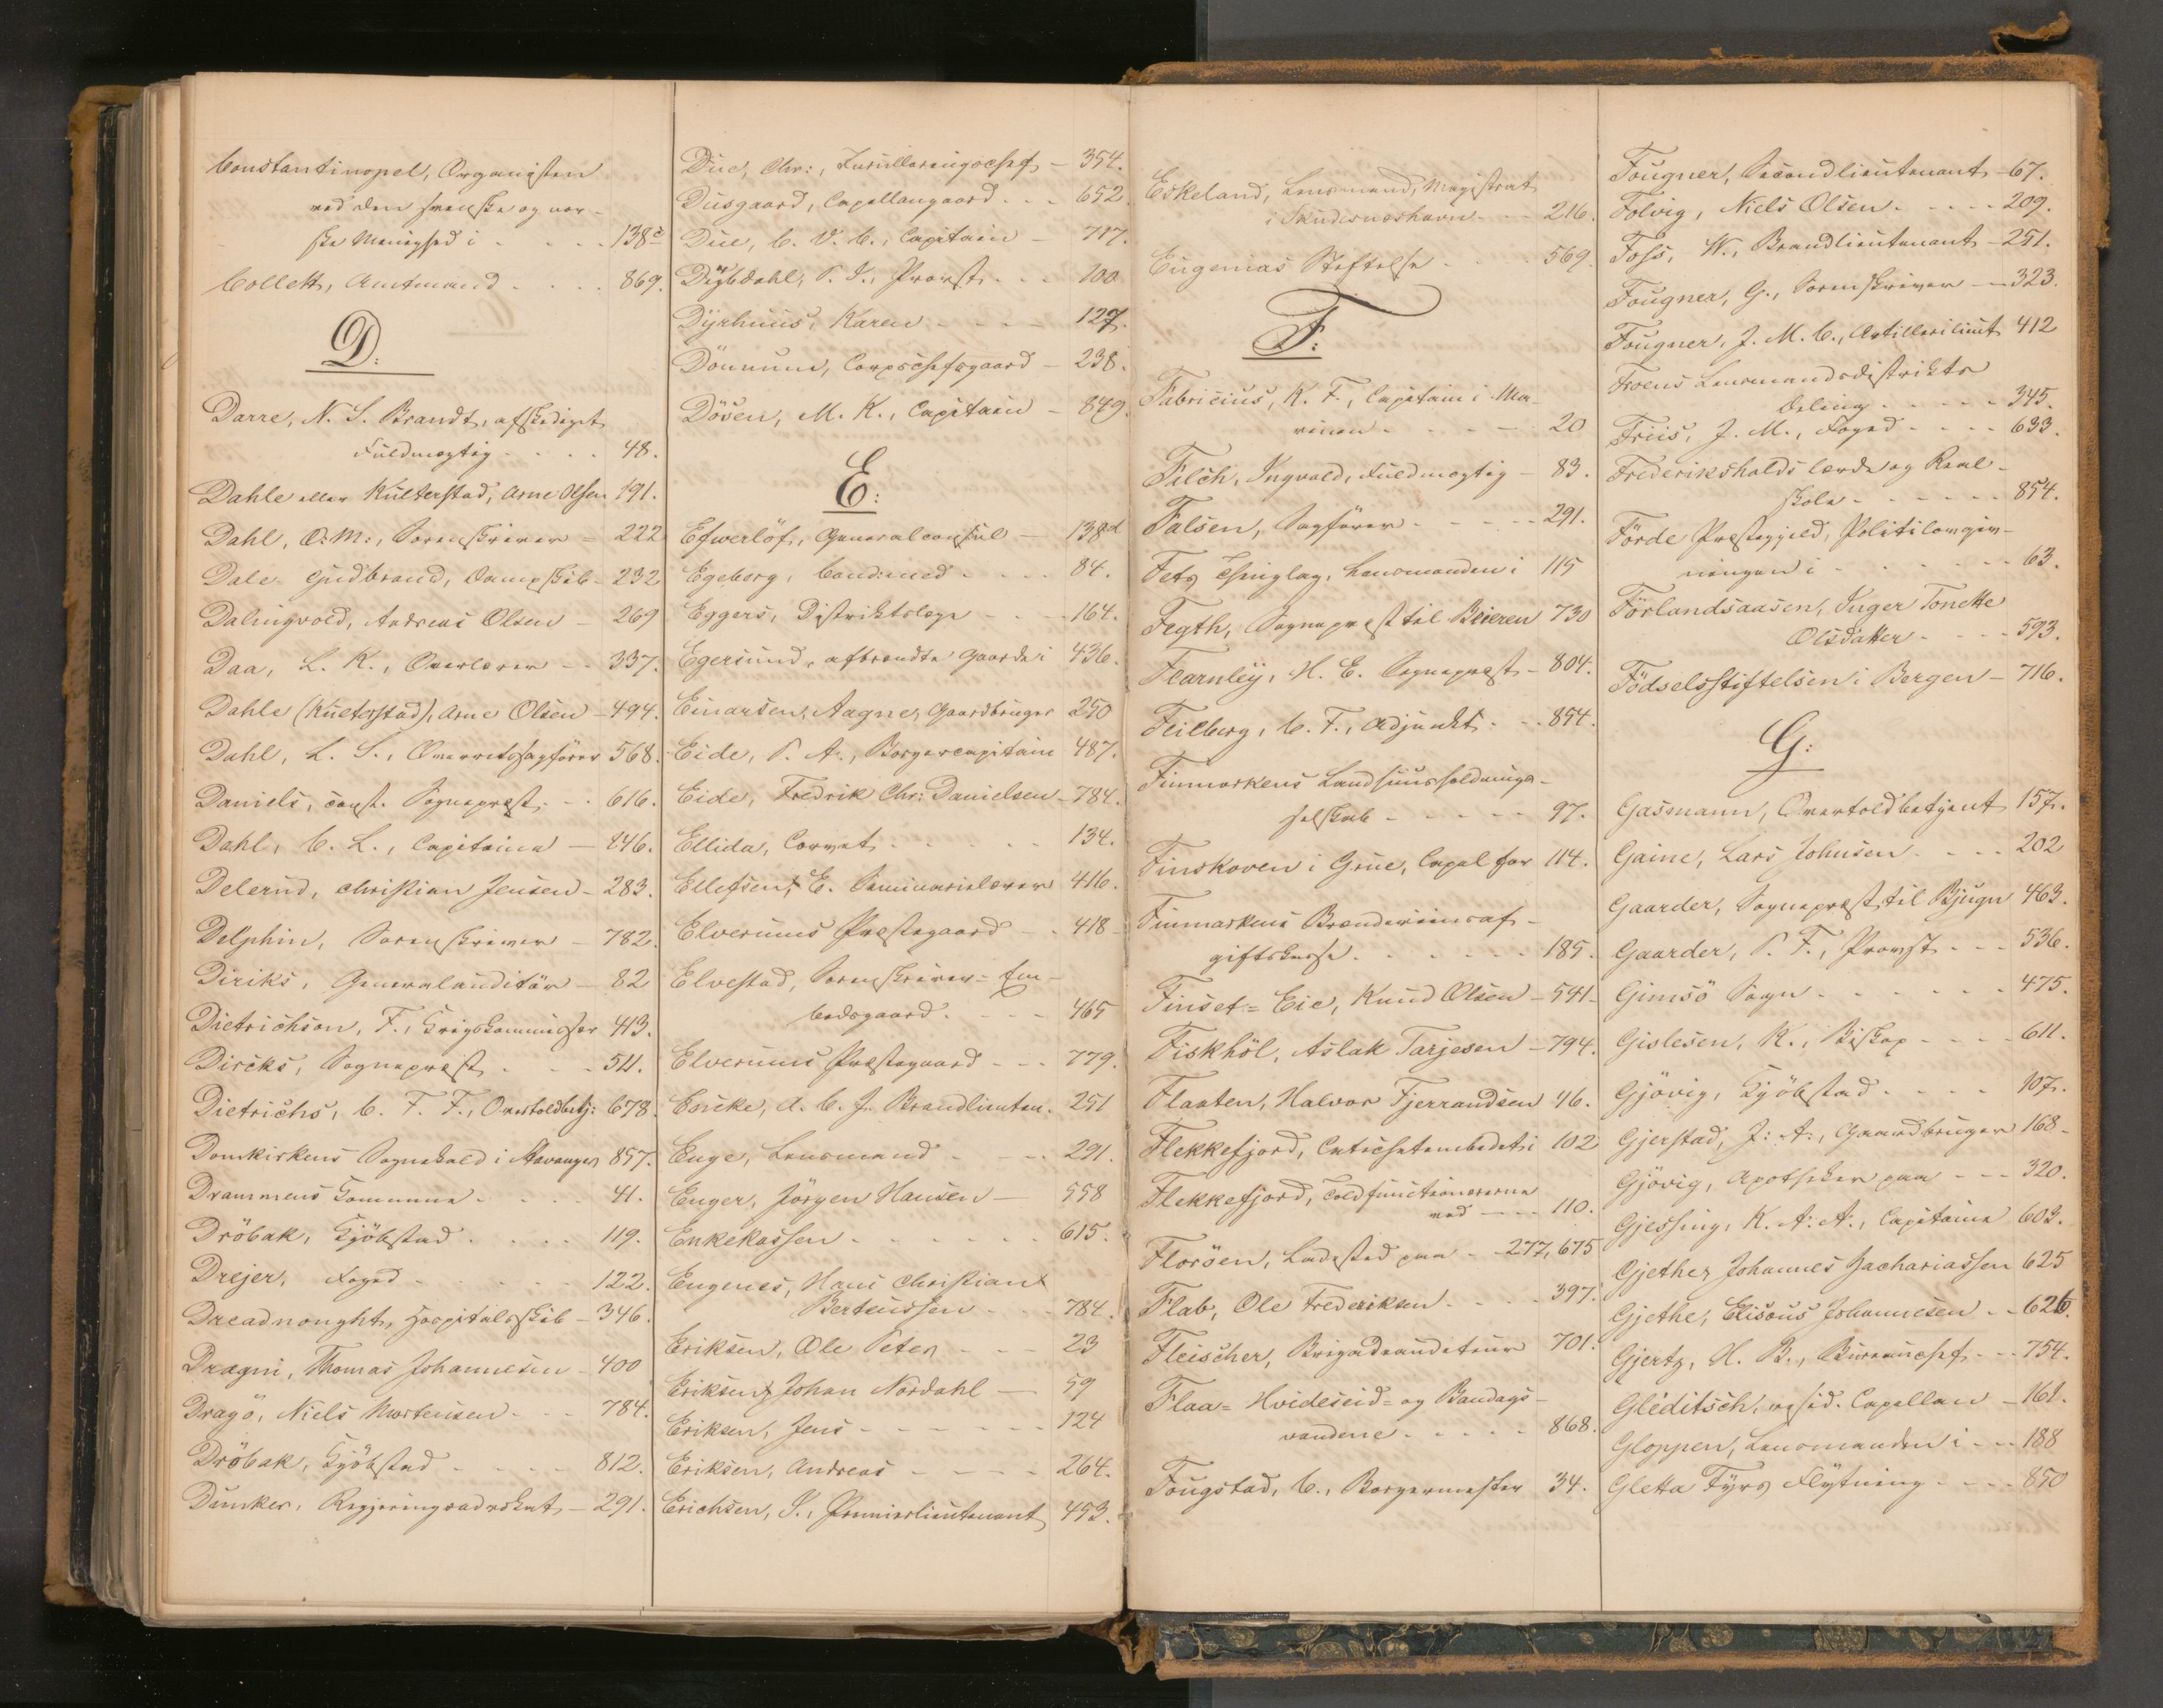 Constantinopel, Organisten
ved den svenske og nor-
ske Menighed i - - - - 138c
Collett, Amtmand - - - - 869.
D:
Darre, N. S. Brandt, afskediget
Fuldmægtig - - - - 48.
Dahle eller Kulterstad, Arne Olsen 191.
Dahl, O: M:, Sorenskriver - 222
Dale-Gudbrand, Dampskib - 232
Dalingvold, Andreas Olsen - 269
Daa, L. K., Overlærer - - 337.
Dahle (Kulterstad), Arne Olsen - 494.
Dahl, L. S., Overretssagfører 568.
Daniels, const. Sogneprest - - 616.
Dahl, C. L., Capitaine - 846.
Delerud, Christian Jensen - 283.
Delphin, Sorenskriver - 782.
Diriks, Generalauditør - 82
Dietrichson, F., Krigskommissær 413.
Dircks, Sogneprest - - - 511.
Dietrichs, C. F. F., Overtoldbetj: 678.
Domkirkens Sognekald i Stavanger 857.
Drammens Commune - - - - 41.
Dröbak, Kjöbstad - - - - 119.
Drejer, Foged - - - - - 122.
Dreadnought, Hospitalsskib - 346.
Drægni, Thomas Johannesen - 400
Dragö, Niels Mortensen - - - 784.
Dröbak, Kjöbstad - - - - 812.
Dunker, Regjeringsadvokat - 291.
Due, Chr:, Inrulleringschef - 354.
Dusgaard, Capellangaard - - - 652.
Due, C. V. C., Capitain - 717.
Dybdahl, P. J., Provst - - - 100
Dyrhuus, Karen - - - - 127.
Dönnum, Corpschefsgaard - 238.
Dösen, M. K., Capitain - 849.
E:
Efwerlöf, Generalconsul - 138d
Egeberg, Cand: med - - - - 84.
Eggers, Distriktslæge - - - 164.
Egersund, afbrændte Gaarde i 436.
Einarsen, Aagne, Gaardbruger 250
Eide, P. A., Borgercapitain 487.
Eide, Fredrik Chr: Danielsen - 784.
Ellida, Corvet - - - - - 134.
Ellefsen, E. Seminarielærer 416.
Elverums Prestegaard - - 418
Elvestad, Sorenskriver-Em-
bedsgaard - - - - 465
Elverums Prestegaard - - - 779.
Encke, A. C. J. Brandlieuten. 251
Enge, Lensmand - - - 291.
Enger, Jörgen Hansen - 558
Enkekassen - - - - - - 615.
Eugenes, Hans Christian
Berteussen - - - 784.
Eriksen, Ole Peter - - - 23
Eriksen, Johan Nordahl - 59
Eriksen, Jens - - - - - - 124
Eriksen, Andreas - - - - 264.
Erichsen, S., Premierlieutenant 453.
Eskeland, Lensmand, Magistrat
i Skudesneshavn - - - 216.
Eugenias Stiftelse - - - - 569.
F:
Fabricius, K. F., Capitain i Ma-
rinen - - - - - 20
Falch, Ingvald, Fuldmægtig - 83.
Falsen, Sagfører - - - - - 291.
Fets Thinglag, Lensmanden i 115
Fegth, Sogneprest til Beieren 730
Fearnley, H. E. Sogneprest - 804.
Feilberg, C. F., Adjunkt - - - 854.
Finmarkens Landhuusholdnings-
selskab - - - - - - 97.
Finskoven i Grue, Capel for 114.
Finmarkens Brændeviinsaf-
giftskasse - - - - - - 185.
Finset-Eie, Knud Olsen - 541.
Fiskhöl, Aslak Tarjesen - 794.
Flaaten, Halvor Fjerrandsen 46.
Flekkefjord, Catechetembedet i 102
Flekkefjord, Toldfunctionærerne
ved - - - 110.
Floröen, Ladested paa - - 277, 675
Flab, Ole Frederiksen - - - - 397.
Fleischer, Brigadeauditeur 701.
Flaa- Hvideseid- og Bandags-
vandene - - - - - 868.
Fougstad, C., Borgermester 34.
Fougner, Secondlieutenant - 67.
Folvig, Niels Olsen - - - - 209.
Foss, W., Brandlieutenant - 251.
Fougner, G., Sorenskriver - - 323.
Fougner, J. M. C., Artillerilieut 412
Froens Lensmandsdistrikts
Deling - - - - - 345.
Friis, J. M., Foged - - - - 633.
Frederikshalds lærde og Real-
skole - - - - - - 854.
Förde Prestegjeld, Politilovgiv-
ningen i - - - - - - 63.
Förlandsaasen, Inger Tonette
Olsdatter - - - - 593.
Födselsstiftelsen i Bergen - 716.
G:
Gasmann, Overtoldbetjent 157.
Gaine, Lars Johnsen - - - - 202
Gaarder, Sogneprest til Bjugn 463.
Gaarder, P. F., Provst - - - 536.
Gimsö Sogn - - - - - - 475.
Gislesen, K., Biskop - - - - 611.
Gjövig, Kjöbstad - - - - 107.
Gjerstad, J: A:, Gaardbruger 168.
Gjövig, Apotheker paa - - - 320.
Gjessing, K. A: A:, Capitaine 603.
Gjethe, Johannes Zachariassen 625
Gjethe, Elisæus Johannesen - - 626.
Gjertz, H. B., Bureauchef - - - 754.
Gleditsch, resid. Capellan - 161.
Gloppen, Lensmanden i - - - 188
Gletta Fyrs Flytning - - - - 850